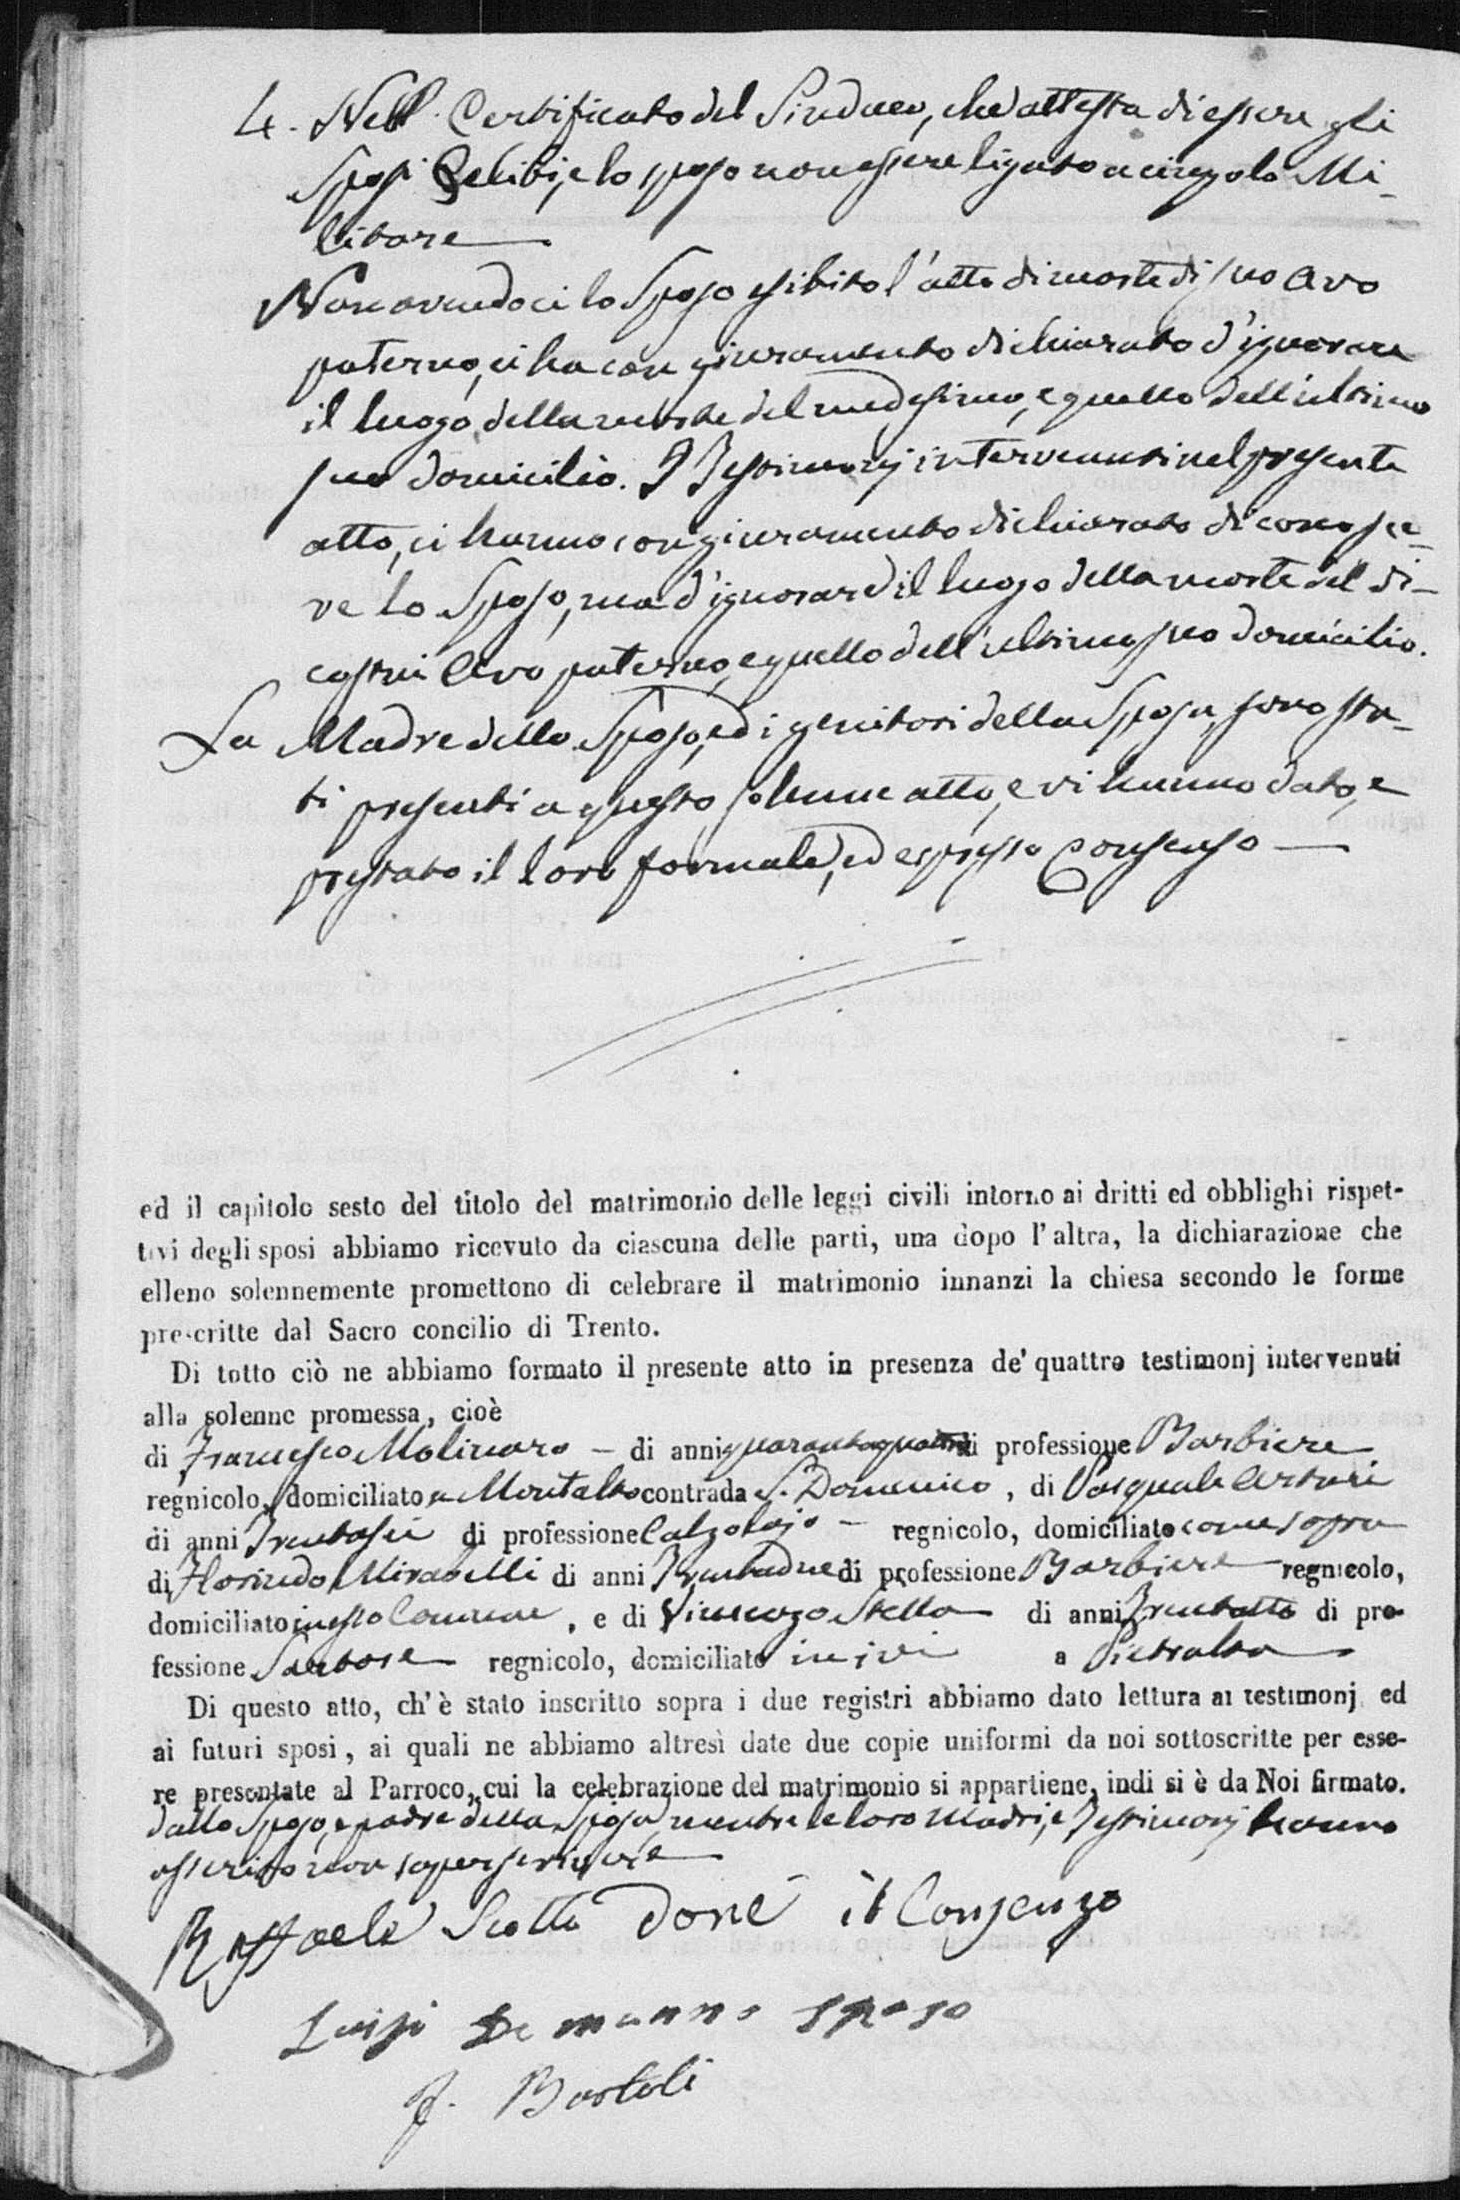 4. Nell Certificato del Sindaco, che attesta di essere gli
Sposi Celibi, e lo sposo non essere ligato a cingolo Mi-
litare
Non avendoci lo Sposo esibito l'atto di morte di suo Avo
paterno, ci ha con giuramento dichiarato d'ignorare
il luogo della morte del medesimo, e quello dell'ultimo
suo domicilio. I Testimonj intervenuti nel presente
atto, ci hanno con giuramento dichiarato di conosce-
re lo Sposo, ma d'ignorare il luogo della morte del di
costui Avo paterno, e quello dell'ultimo suo domicilio.
La Madre dello Sposo, ed i genitori della Sposa, sono sta-
ti presenti a questo solenne atto, e vi hanno dato, e
prestato il loro formale, ed espresso Consenso
ed il capitolo sesto del titolo del matrimonio delle leggi civili intorno ai dritti ed obblighi rispet-
tivi degli sposi abbiamo ricevuto da ciascuna delle parti, una dopo l'altra, la dichiarazione che
elleno solennemente promettono di celebrare il matrimonio innanzi la chiesa secondo le forme
prescritte dal Sacro concilio di Trento.
Di totto ciò ne abbiamo formato il presente atto in presenza de' quattro testimonj intervenuti
alla solenne promessa, cioè
di Francesco Molinaro — di anni quarantaquattro di professione Barbiere
regnicolo, domiciliato a Montalto contrada S. Domenico, di Pasquale Arturi
di anni Trentasei di professione Calzolajo — regnicolo, domiciliato come sopra
di Florindo Mirabelli di anni Trentadue di professione Barbiere regnicolo,
domiciliato in esto Comune, e di Vincenzo Stella di anni Trentotto di pro-
fessione Sartore regnicolo, domiciliato in ivi a Pietralta
Di questo atto, ch'è stato inscritto sopra i due registri abbiamo dato lettura ai testimonj ed
ai futuri sposi, ai quali ne abbiamo altresì date due copie uniformi da noi sottoscritte per esse-
re presentate al Parroco, cui la celebrazione del matrimonio si appartiene, indi si è da Noi firmato.
dallo Sposo, e padre della Sposa, mentre le loro Madri, e Testimonj hanno
asserito non saper scrivere
Raffaele Scotti done il Consenzo
Luigi De munno sposo
F. Bartoli